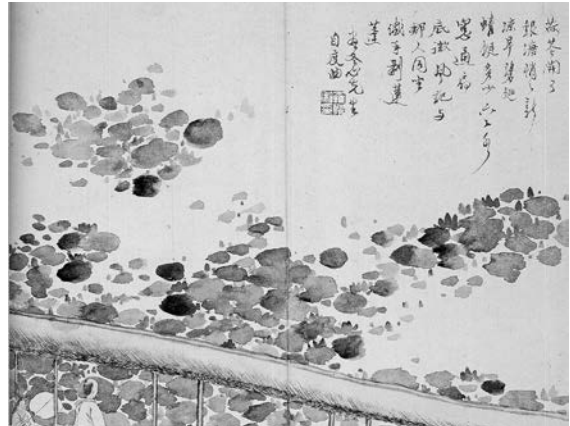 荷花開了
銀塘悄悄新
涼早碧翅
蜻蜓多少六六水
窗通扇
底微風記与
那人同坐
纖手剝蓮
蓬
冬心先生
自度曲